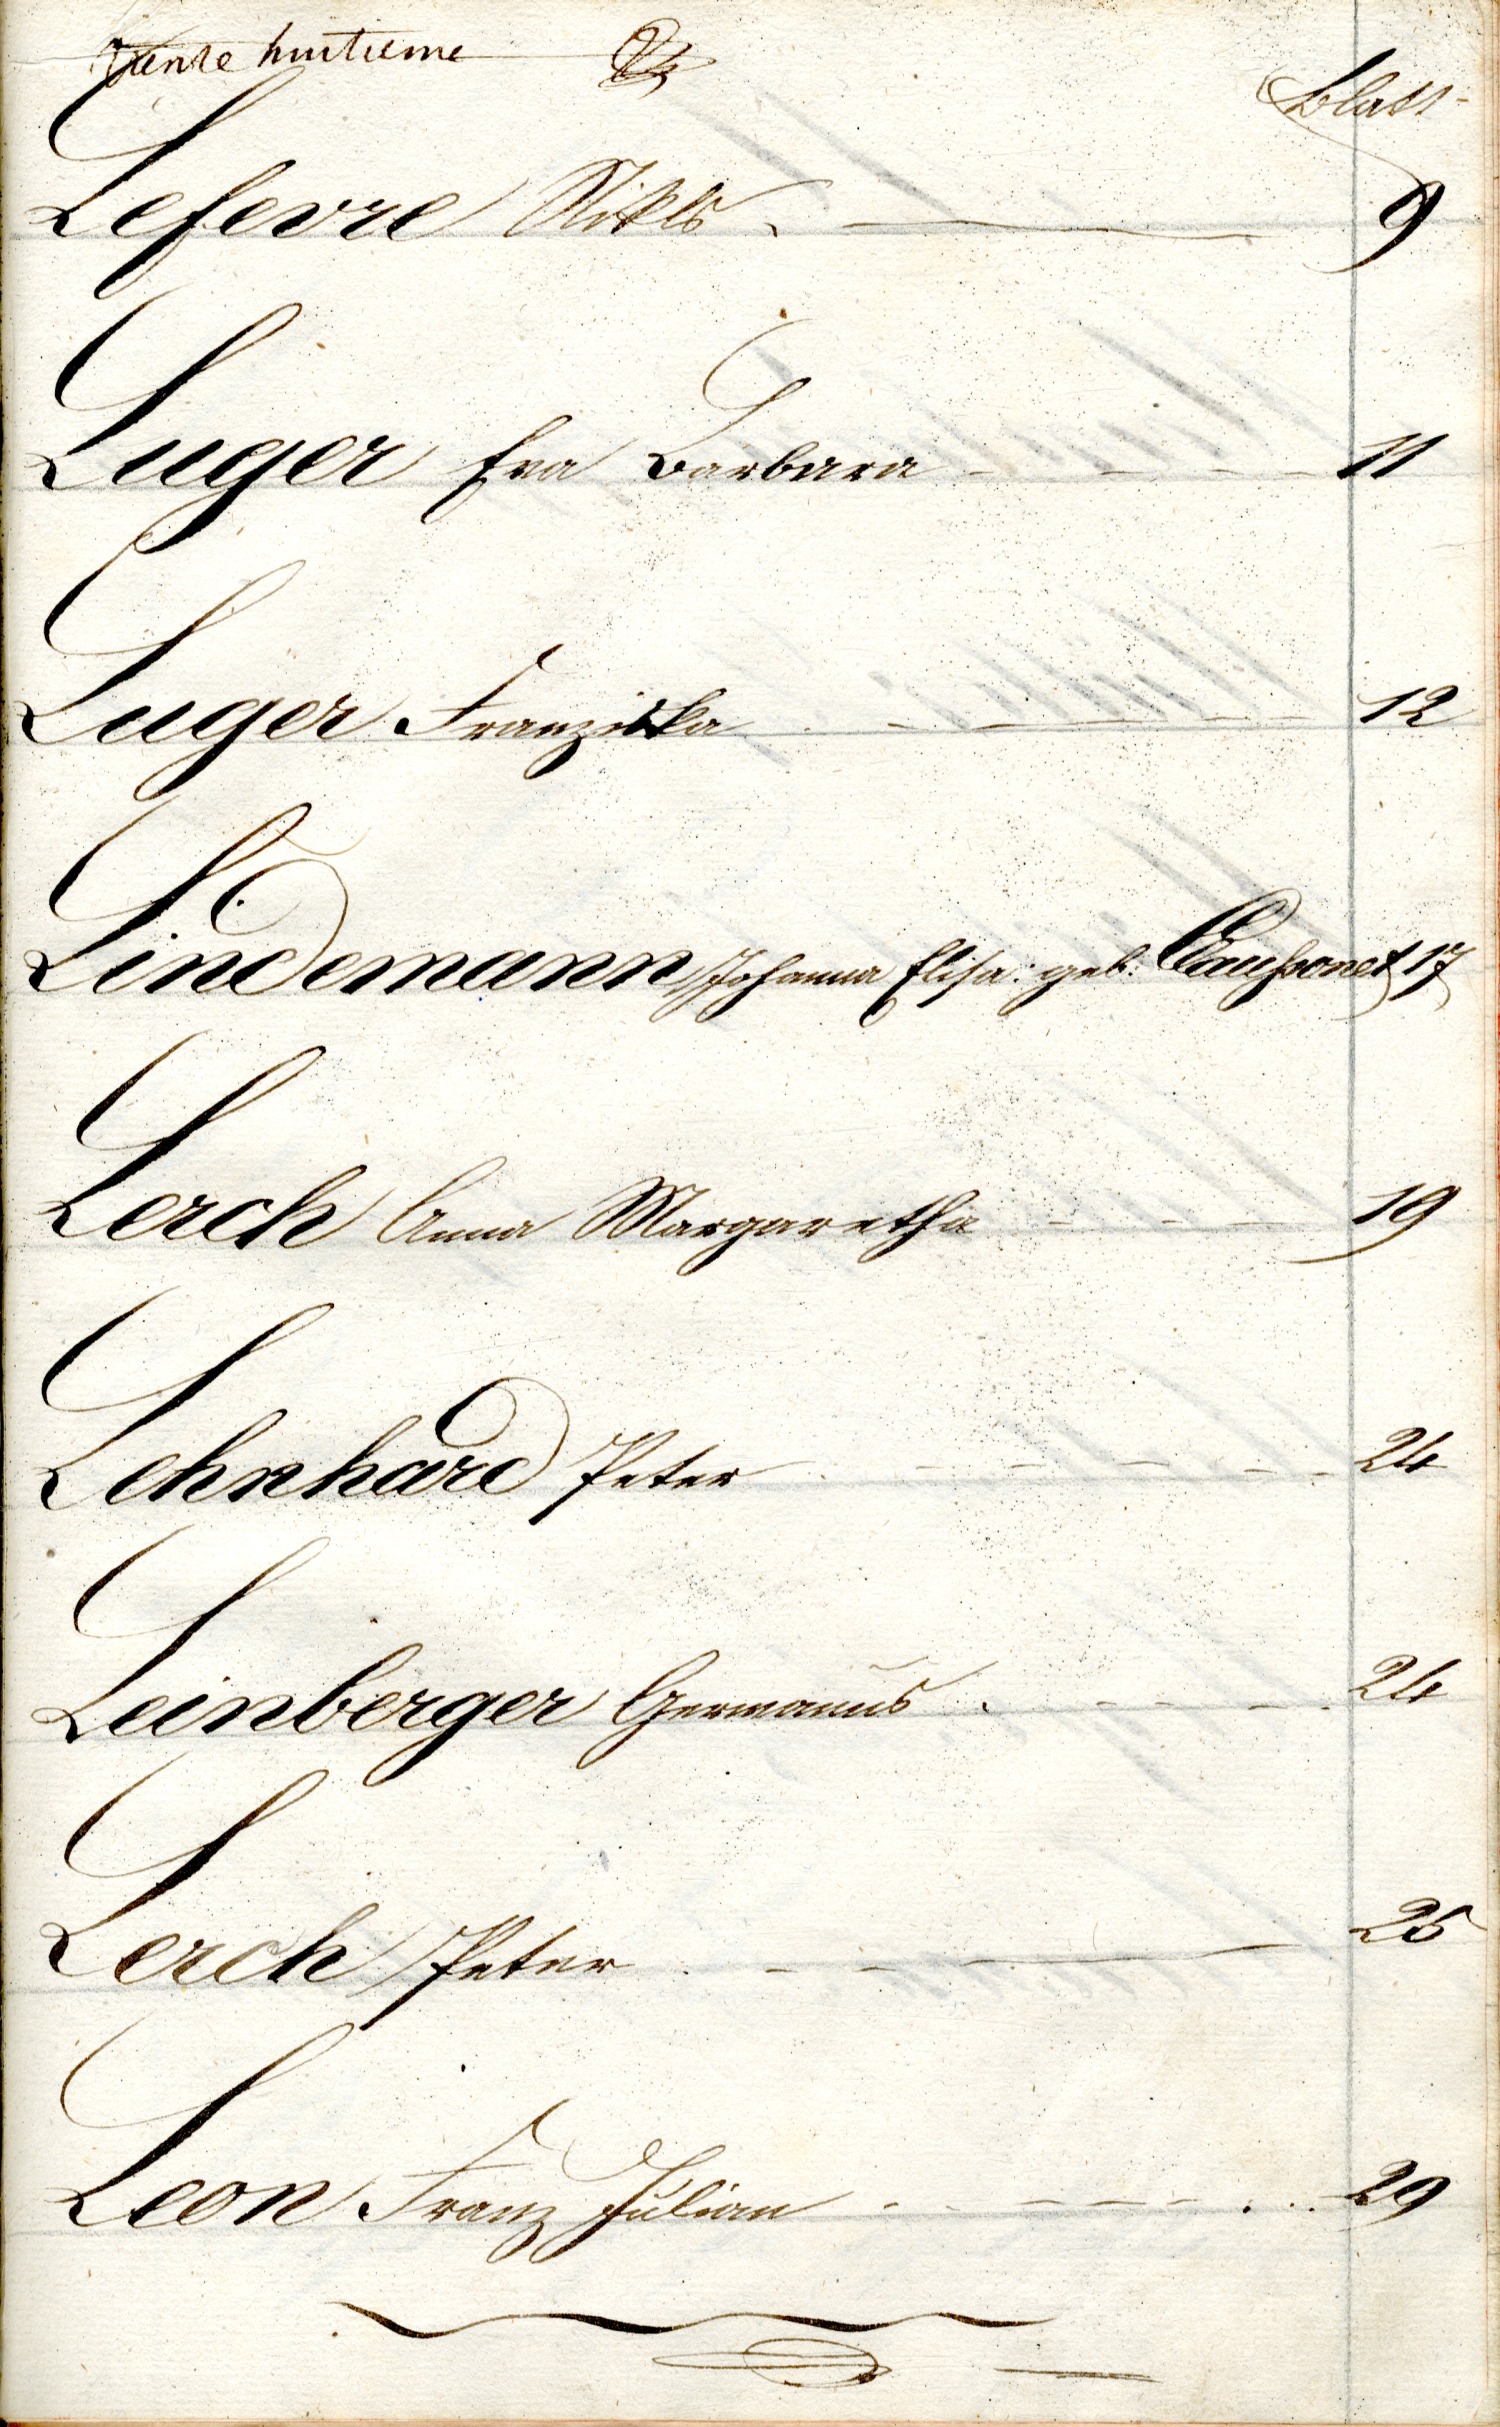 trente huitieme
Blatt
Lefevre Nikls 9
Luger Eva Barbara 11
Luger Franziska 12
Lindemann Johanna Elisa: geb: 17
Lerch Anna Margaretha 19
Lehnhard Peter 24
Leinberger Germanus 24
Lerch Peter 25
Leon Franz Julian 29